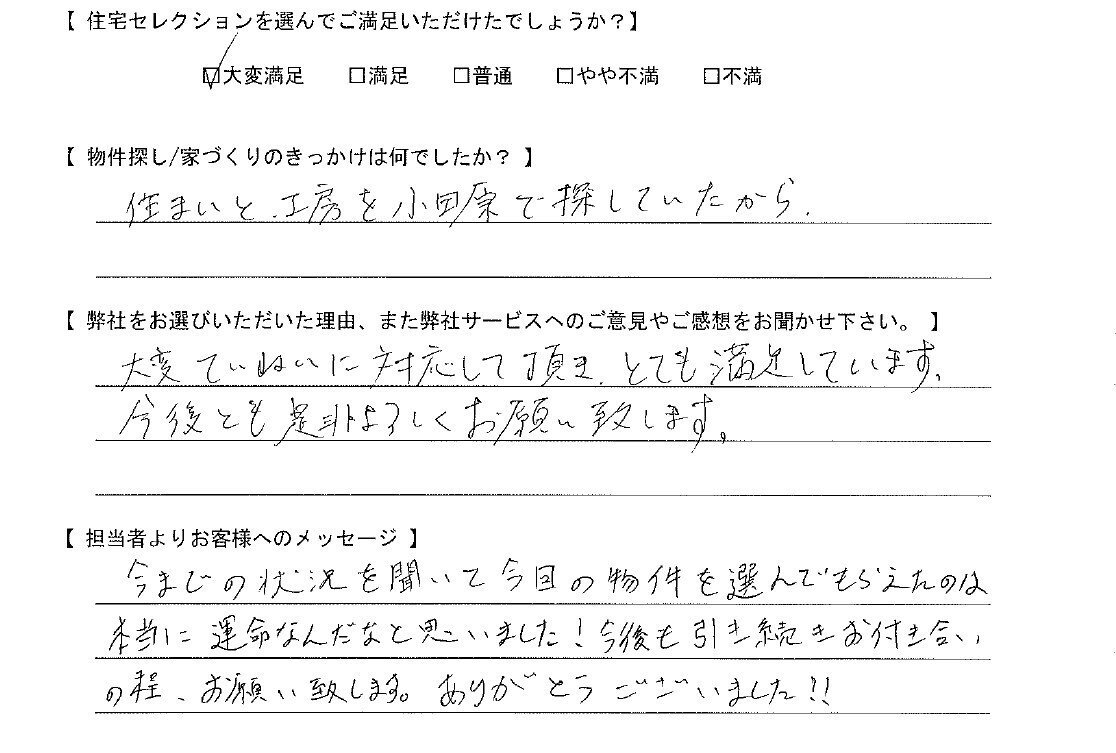 【 住宅セレクションを選んでご満足いただけたでしょうか？】
☑大変満足 □満足 □普通 □やや不満 □不満
【 物件探し/家づくりのきっかけは何でしたか？ 】
住まいと、工房を小田原で探していたから.
【 弊社をお選びいただいた理由、また弊社サービスへのご意見やご感想をお聞かせ下さい。 】
大変ていねいに対応して頂き、とても満足しています。
今後とも是非よろしくお願い致します。
【 担当者よりお客様へのメッセージ 】
今までの状況を聞いて今回の物件を選んでもらえたのは
本当に運命なんだなと思いました！今後も引き続きお付き合い
の程、お願い致します。ありがとうございました!!